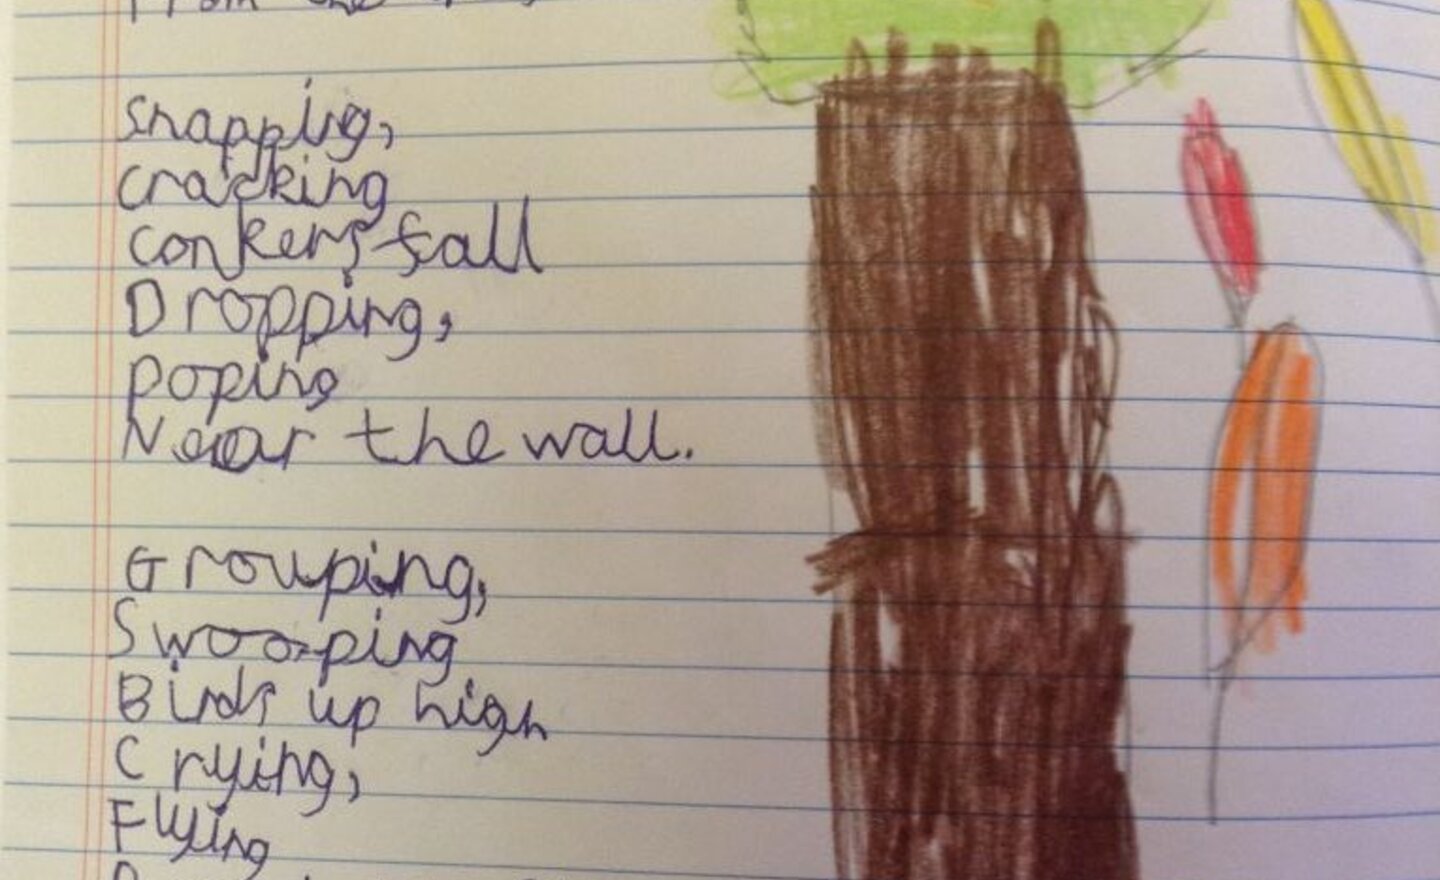 From the
Snapping,
cracking
conkers fall
Dropping,
poping
Near the wall.
Grouping,
Swooping
Birds up high
Crying,
Flying